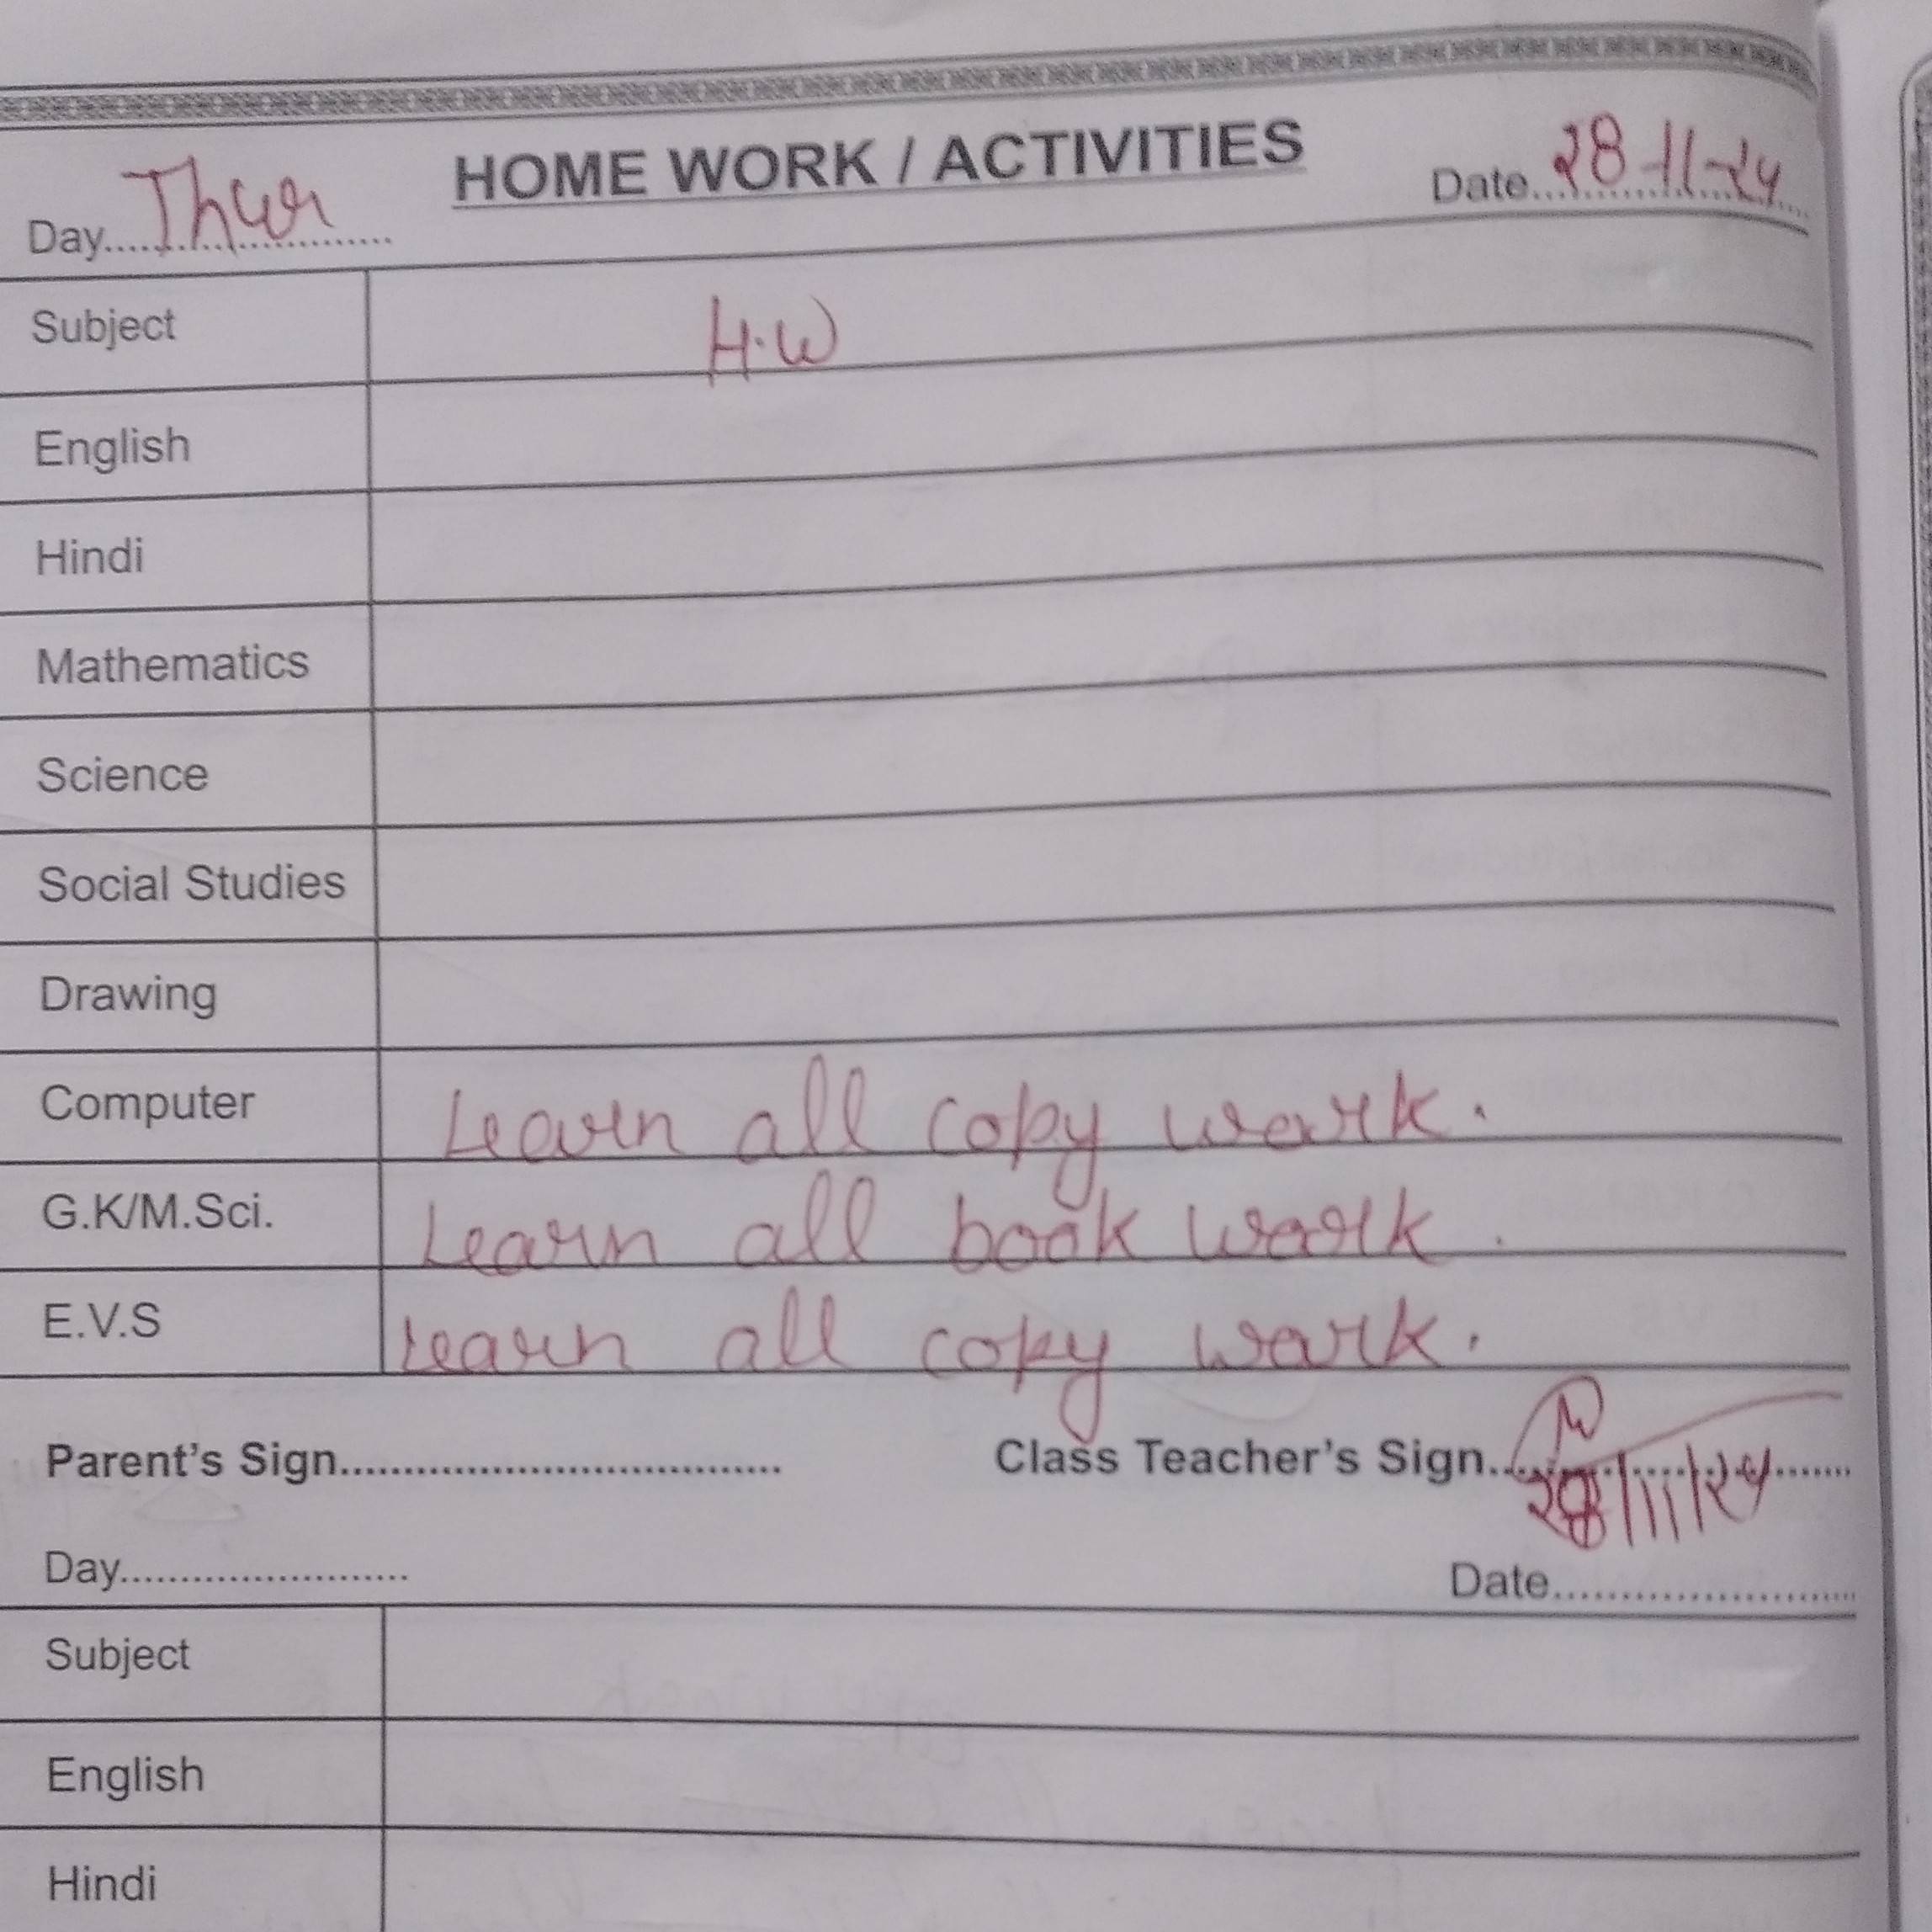 HOME WORK / ACTIVITIES
Day.....Thur.......... Date..28-11-24..
Subject H.W
English
Hindi
Mathematics
Science
Social Studies
Drawing
Computer Learn all copy work.
G.K/M.Sci. Learn all book work.
E.V.S Learn all copy work.
Parent's Sign.................................... Class Teacher's Sign.............................
28/11/24
Day........................ Date..........................
Subject
English
Hindi